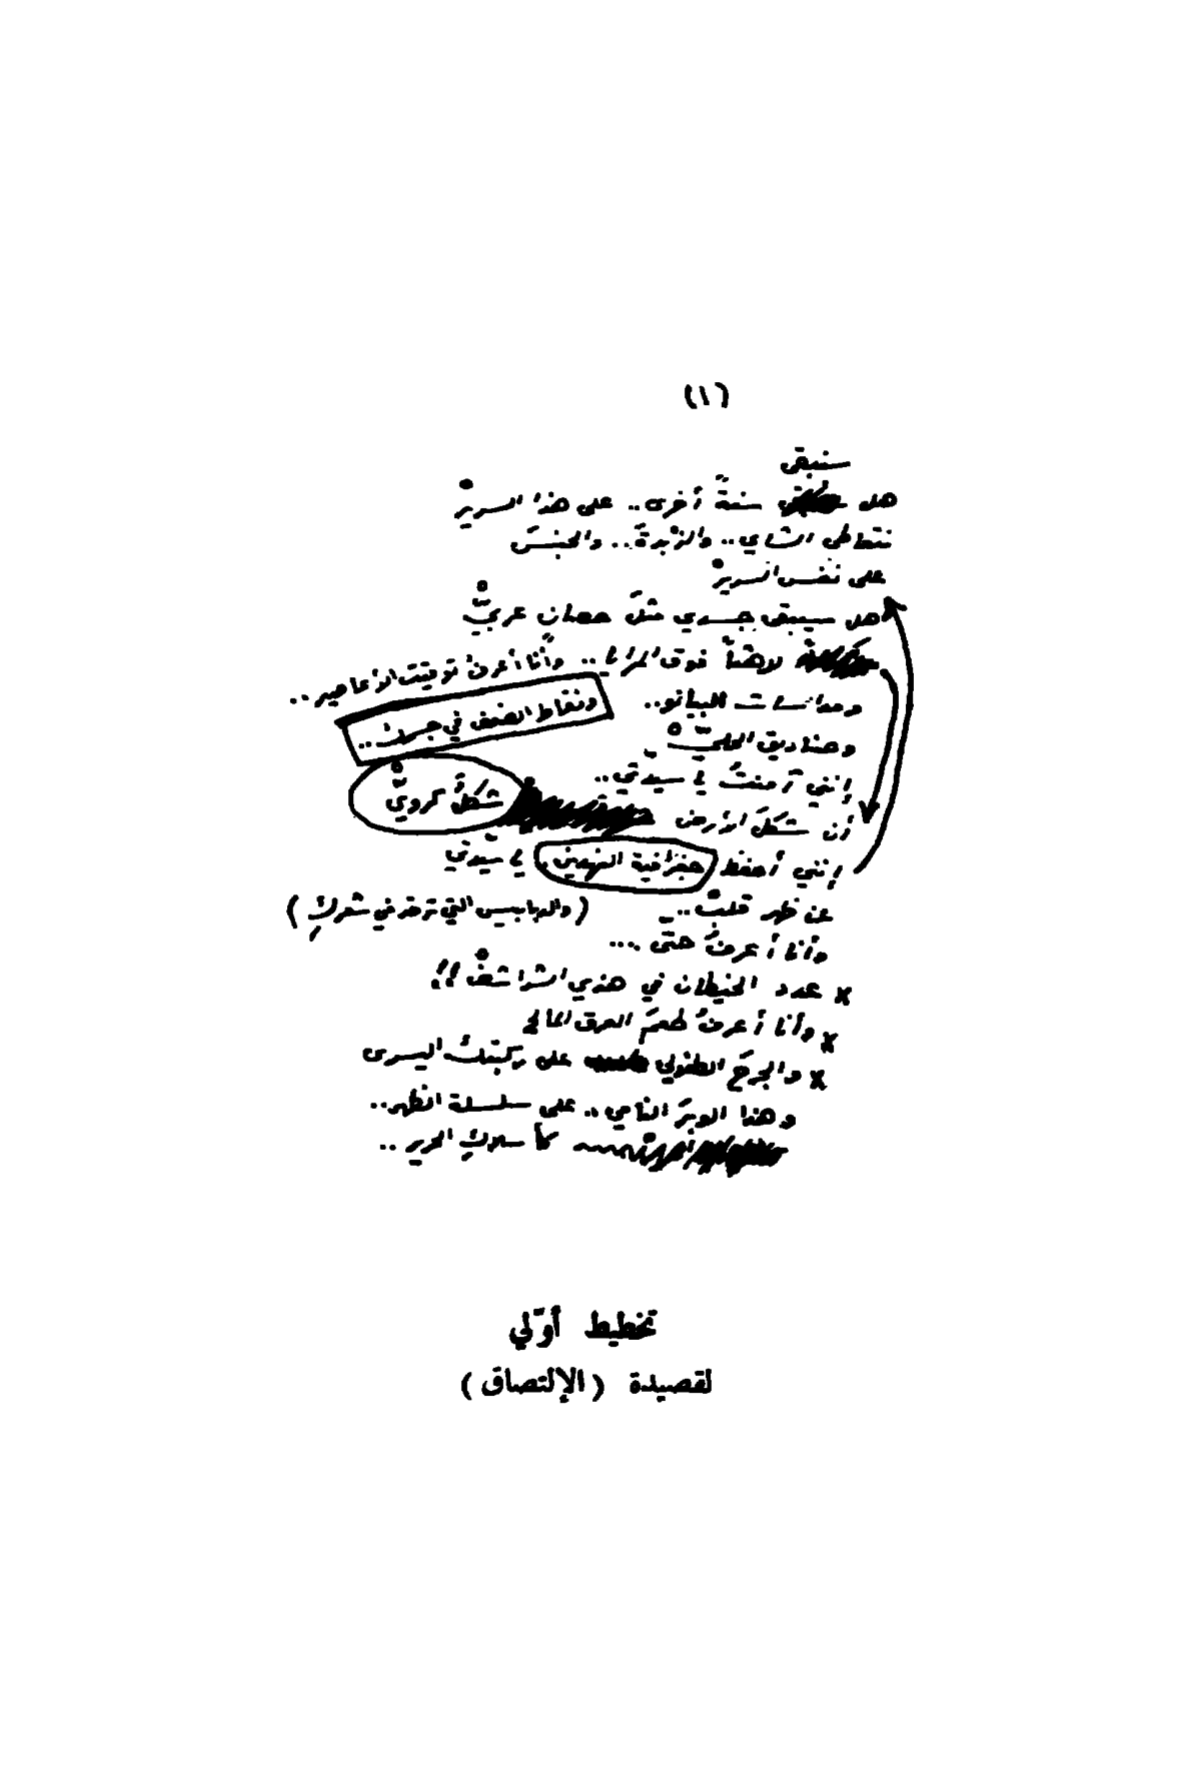 (١)
سنبقى
هل سنةً أخرى.. على هذا السريرْ
نتعاطى الشاي.. والزبدةَ.. والجنسَ
على نفس السريرْ
هل سيبقى جسدي مثلَ حصانٍ عربيٍّ
لاهثاً فوق المرايا.. وأنا أعرفُ توقيتَ الأعاصير..
ومداسات البيانو..
ونقاط الضعف في جسدك..
وصناديق الحليّْ
إنني آمنتُ يا سيدتي..
أن شكلَ الأرض شكلٌ كرويّْ
إنني أحفظ جغرافية النهدين يا سيّدتي
عن ظهر قلبْ..
(والدبابيس التي ترقد في شعركِ)
وأنا أعرفُ حتّى ....
x عدد الخيطان في هذي الشراشفْ!!
x وأنا أعرفُ طعمَ العرق المالح
x والجرحَ الطفولي على ركبتك اليسرى
وهذا الوبرَ النامي.. على سلسلة الظهر..
كأسلاكِ الحرير..
تخطيط أوّلي
لقصيدة (الإلتصاق)